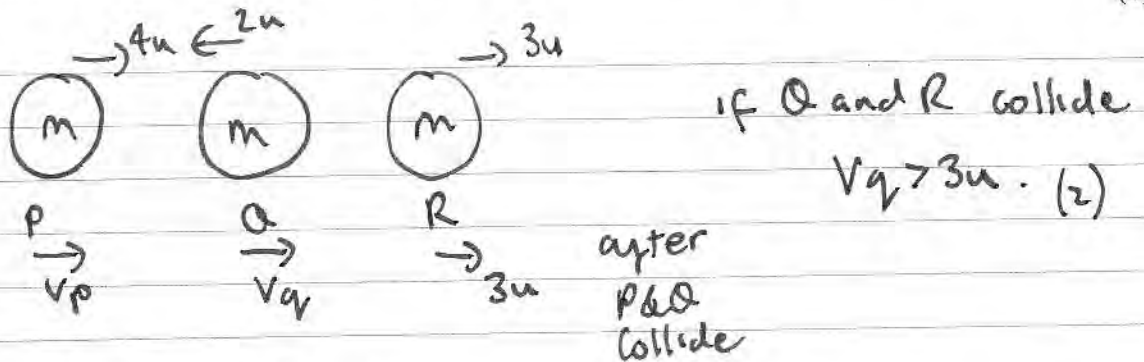 → 4u ← 2u → 3u
m m m if Q and R collide
Vq > 3u. (2)
P Q R
→ → → after
Vp Vq 3u P&Q
Collide